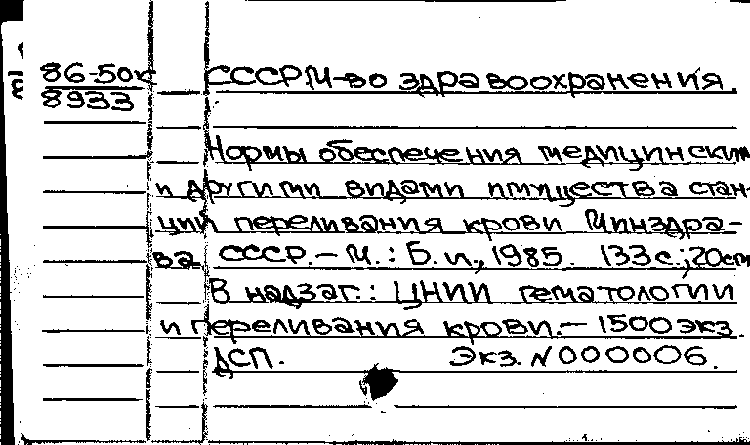 86-50к
8933
СССР, М-во здравоохранения.
Нормы обеспечения медицинским
и другими видами имущества стан-
ций переливания крови Минздра-
ва СССР.- М.: Б. и., 1985. 133 с.; 20 см
В надзаг.: ЦНИИ гематологии
и переливания крови.- 1500 экз.
ДСП. Экз. N 000006.